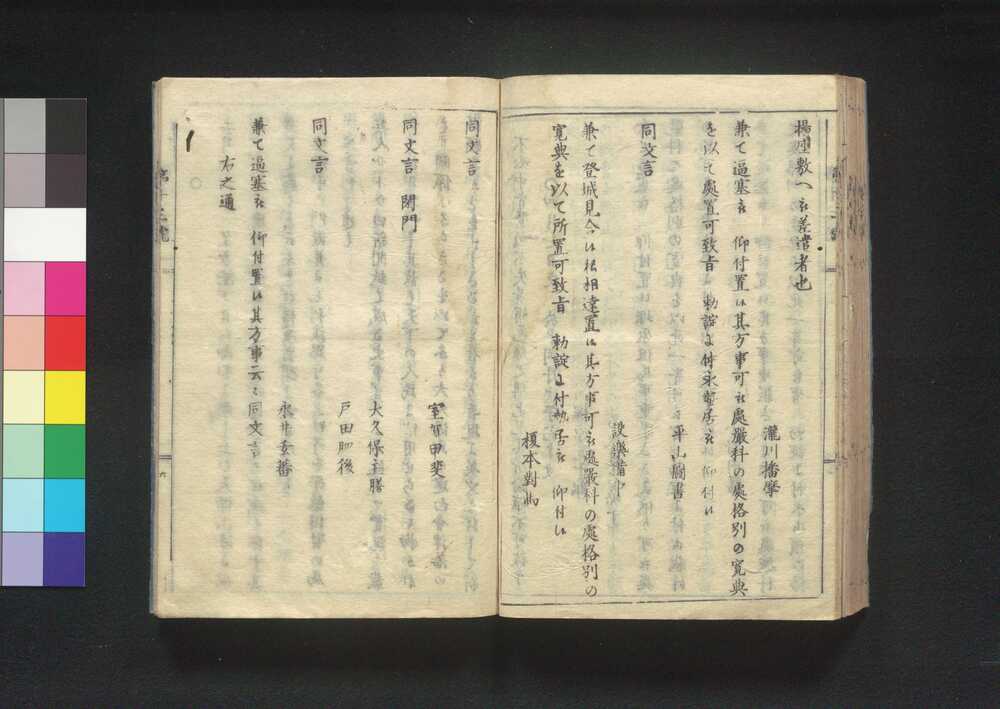 揚座敷へ被差遣者也
瀧川播摩
兼て逼塞被　仰付置候其方事可被處嚴科の處格別の寛典
を以て處置可致旨　勅諚ニ付永蟄居被　仰付候
平山圖書
同文言
設樂備中
兼て登城見合候様相達置候其方事可被處嚴科の處格別の
寛典を以て所置可致旨　勅諚ニ付蟄居被　仰付候
榎本對馬
同文言
室賀甲斐
同文言　閉門
大久保主膳
戸田肥後
同文言
永井玄蕃
兼て逼塞被　仰付置候其方事云々同文言
右之通
六